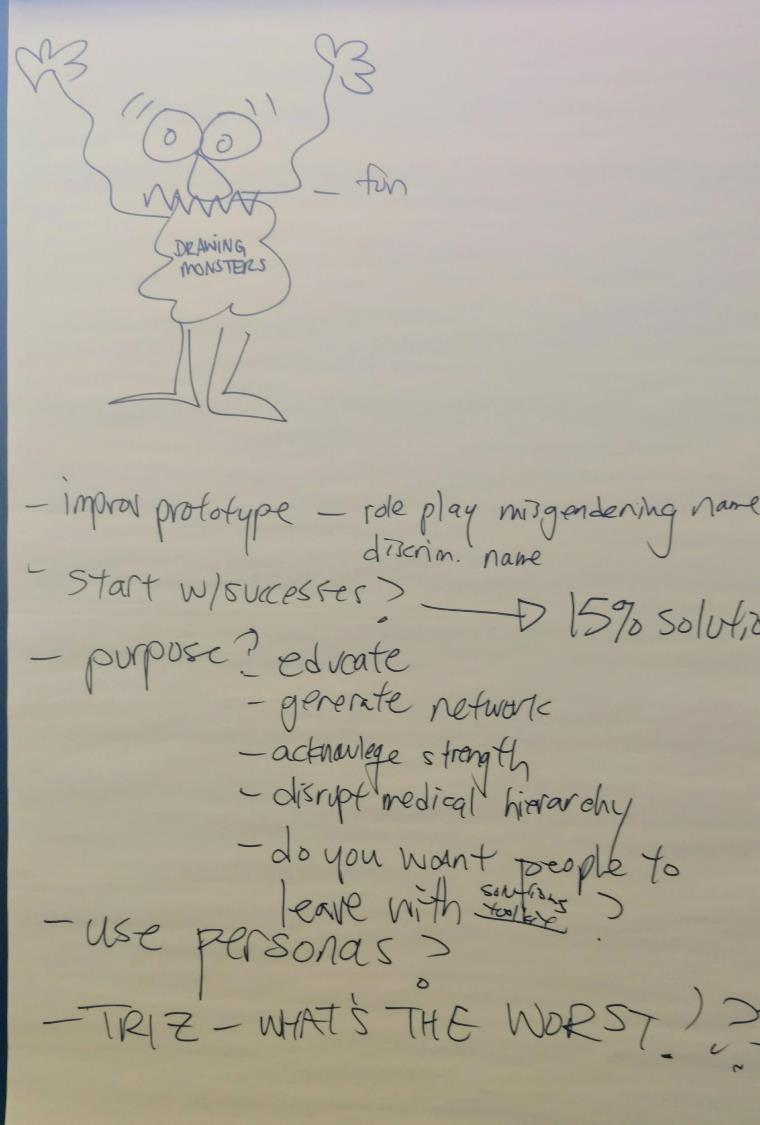 - fun
DRAWING
MONSTERS
- improv prototype - role play misgendering name
discrim. name
- start w/successes? → 15% solutio
- purpose? - educate
- generate network
- acknowlege strength
- disrupt medical hierarchy
- do you want people to
leave with solutions toolkit ?
- use personas?
- TRIZ - WHAT'S THE WORST !?